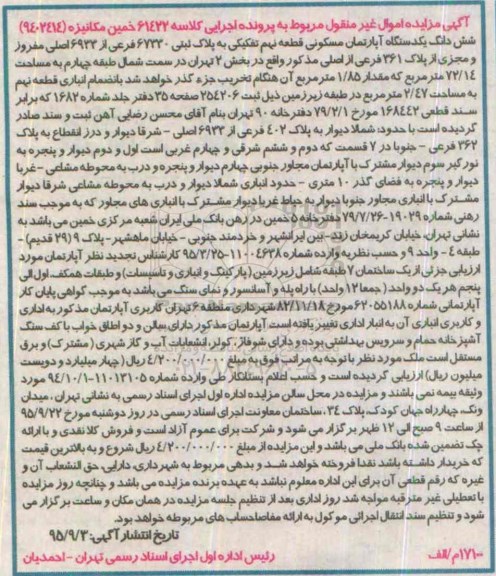 آگهی مزایده اموال غیر منقول مربوط به پرونده اجرایی کلاسه ۶۱۴۲۲ خمین مکانیزه (۹۴۰۲۴۱۴)
شش دانگ یکدستگاه آپارتمان مسکونی قطعه نهم تفکیکی به پلاک ثبتی ۶۷۳۰ فرعی از ۶۹۳۳ اصلی مفروز
و مجزی از پلاک ۳۶۱ فرعی از اصلی مذکور واقع در بخش ۲ تهران در سمت شمال طبقه چهارم به مساحت
۷۲/۱۴ متر مربع که مقدار ۱/۸۵ متر مربع آن هنگام تخریب جزء گذر خواهد شد بانضمام انباری قطعه نهم
به مساحت ۲/۴۷ مترمربع در طبقه زیرزمین ذیل ثبت ۲۵۴۲۰۶ صفحه ۳۵ دفتر جلد شماره ۱۶۸۲ که برابر
سند قطعی ۱۶۸۴۴۲ مورخ ۷۹/۲/۱ دفترخانه ۹۰ تهران بنام آقای محسن رضایی آهن ثبت و سند صادر
گردیده است با حدود: شمالا دیوار به پلاک ۴۰۲ فرعی از ۶۹۳۳ اصلی - شرقا دیوار و درز انقطاع به پلاک
۳۶۲ فرعی - جنوبا در ۷ قسمت که دوم و ششم شرقی و چهارم غربی است اول و دوم دیوار و پنجره به
نورگیر سوم دیوار مشترک با آپارتمان مجاور جنوبی چهارم دیوار و پنجره و درب به محوطه مشاعی - غربا
دیوار و پنجره به فضای گذر ۱۰ متری - حدود انباری شمالا دیوار و درب به محوطه مشاعی شرقا دیوار
مشترک با انباری مجاور جنوبا دیوار به حیاط غربا دیوار مشترک با انباری های مجاور که به موجب سند
رهنی شماره ۱۹۰۲۹-۷۹/۷/۲۶ دفترخانه ۵ خمین در رهن بانک ملی ایران شعبه مرکزی خمین می باشد به
نشانی تهران، خیابان کریمخان زند-بین ایرانشهر و خردمند جنوبی - خیابان ماهشهر - پلاک ۹ (۲۹ قدیم) -
طبقه ۴ - واحد ۹ و حسب نظریه وارده شماره ۱۱۰۰۴۶۳۸-۹۵/۳/۲۵ کارشناس تجدید نظر آپارتمان مورد
ارزیابی جزئی از یک ساختمان ۷ طبقه شامل زیرزمین (پارکینگ و انباری و تاسیسات) و طبقات همکف اول الی
پنجم هر یک دو واحد (جمعا ۱۲ واحد) با راه پله و آسانسور و نمای سنگ می باشد به موجب گواهی پایان کار
آپارتمانی شماره ۶۲۰۵۵۱۸۸ مورخ ۸۲/۱۱/۱۸ شهرداری منطقه ۶ تهران کاربری آپارتمان مذکور به اداری
و کاربری انباری آن به انبار اداری تغییر یافته است آپارتمان مذکور دارای سالن و دو اطاق خواب با کف سنگ
آشپزخانه حمام و سرویس بهداشتی بوده و دارای شوفاژ، کولر، انشعابات آب و گاز شهری (مشترک) و برق
مستقل است ملک مورد نظر با توجه به مراتب فوق به مبلغ ۴/۲۰۰/۰۰۰/۰۰۰ ریال (چهار میلیارد و دویست
میلیون ریال) ارزیابی گردیده است و حسب اعلام بستانکار طی وارده شماره ۱۱۰۱۳۱۰۵-۹۴/۱۰/۱ مورد
وثیقه بیمه نمی باشند و مزایده در محل سالن مزایده اداره اول اجرای اسناد رسمی به نشانی تهران، میدان
ونک، چهارراه جهان کودک، پلاک ۳۴، ساختمان معاونت اجرای اسناد رسمی در روز دوشنبه مورخ ۹۵/۹/۲۲
از ساعت ۹ صبح الی ۱۲ ظهر برگزار می شود و شرکت برای عموم آزاد است و فروش کلا نقدی و با ارائه
چک تضمین شده بانک ملی می باشد و این مزایده از مبلغ ۴/۲۰۰/۰۰۰/۰۰۰ ریال شروع و به بالاترین قیمت
که خریدار داشته باشد نقدا فروخته خواهد شد و بدهی مربوط به شهرداری، دارایی، حق انشعاب آن و
غیره که رقم قطعی آن برای این اداره معلوم نباشد به عهده برنده مزایده می باشد و چنانچه روز مزایده
با تعطیلی غیر مترقبه مواجه شد روز اداری بعد از تنظیم جلسه مزایده در همان مکان و ساعت برگزار می
شود و تنظیم سند انتقال اجرائی موکول به ارائه مفاصاحساب های مربوطه خواهد بود.
تاریخ انتشار آگهی: ۹۵/۹/۳
۱۷۱۰۰م/الف رئیس اداره اول اجرای اسناد رسمی تهران - احمدیان